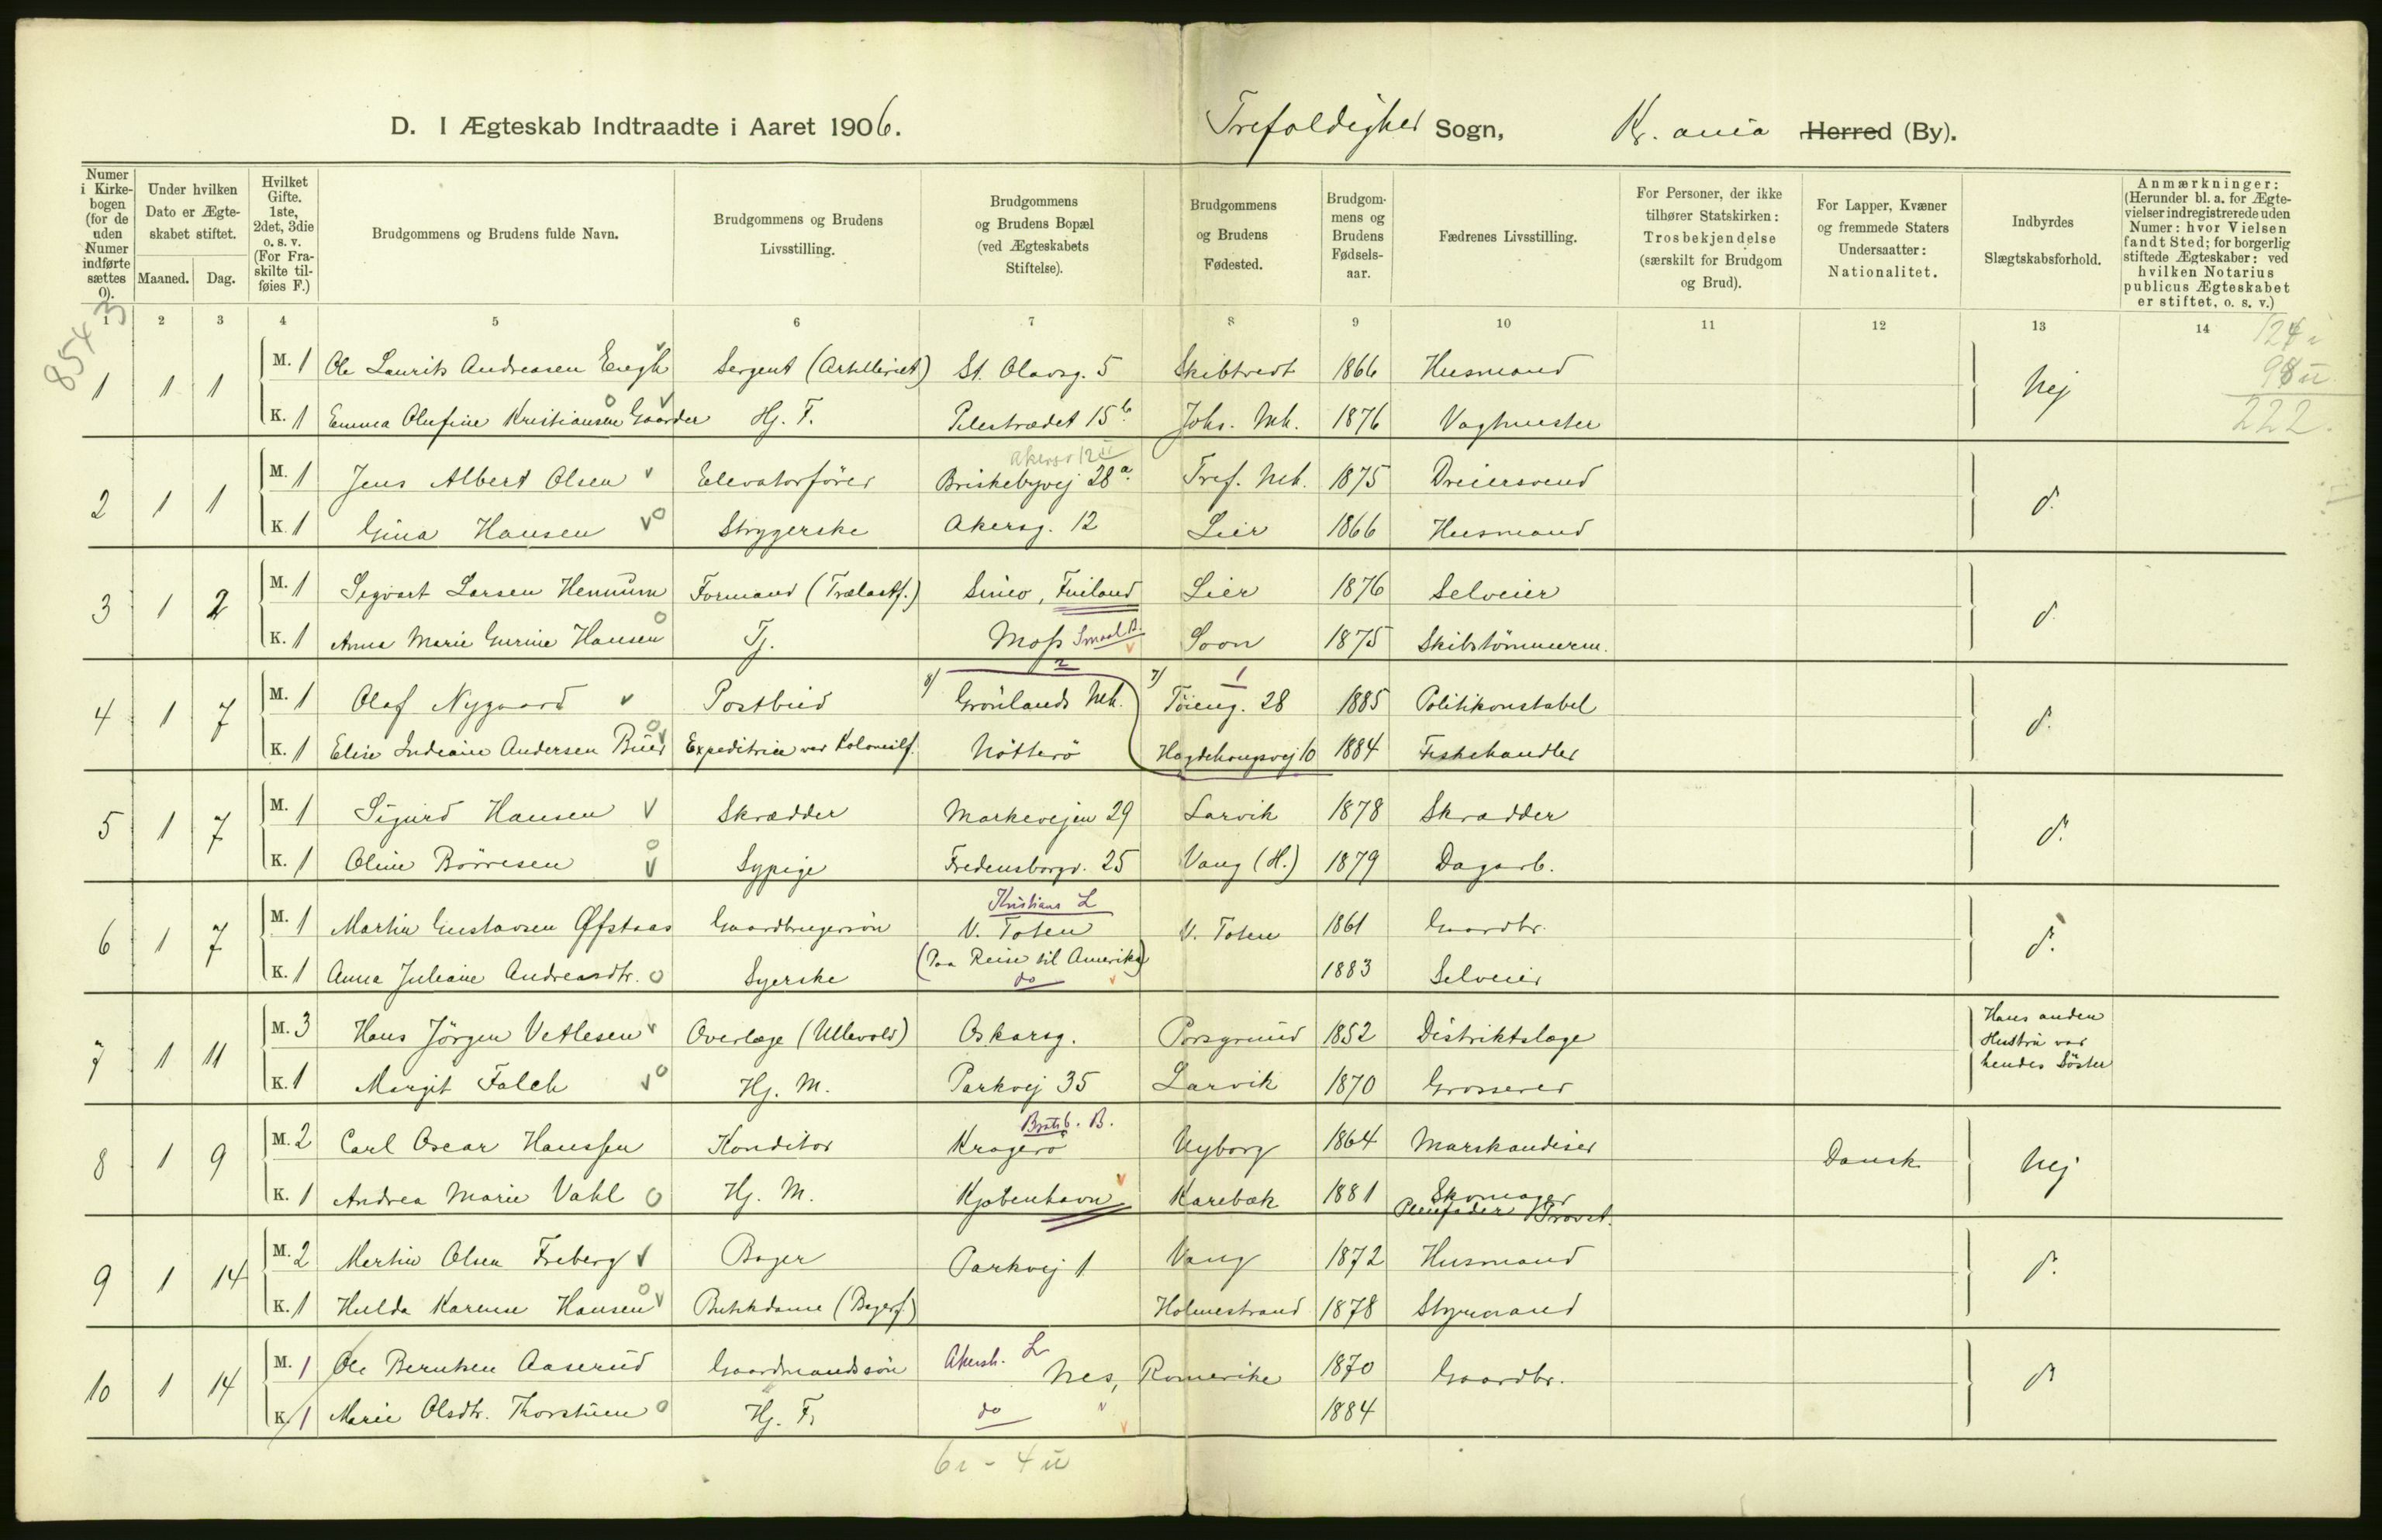 D. I Ægteskab Indtraadte i Aaret 1906. Trefoldighed Sogn, Kr. ania Herred (By).
Numer i Kirkebogen (for de uden Numer indførte sættes 0).
Under hvilken Dato er Ægteskabet stiftet.
Maaned. Dag.
Hvilket Gifte. 1ste, 2det, 3die o. s. v. (For Fraskilte tilføies F.)
Brudgommens og Brudens fulde Navn.
Brudgommens og Brudens Livsstilling.
Brudgommens og Brudens Bopæl (ved Ægteskabets Stiftelse).
Brudgommens og Brudens Fødested.
Brudgommens og Brudens Fødselsaar.
Fædrenes Livsstilling.
For Personer, der ikke tilhører Statskirken: Trosbekjendelse (særskilt for Brudgom og Brud).
For Lapper, Kvæner og fremmede Staters Undersaatter: Nationalitet.
Indbyrdes Slægtskabsforhold.
Anmærkninger: (Herunder bl. a. for Ægtevielser indregistrerede uden Numer: hvor Vielsen fandt Sted; for borgerlig stiftede Ægteskaber: ved hvilken Notarius publicus Ægteskabet er stiftet, o. s. v.)
1 2 3 4 5 6 7 8 9 10 11 12 13 14
8543
222.
1 1 1 M. 1 Ole Laurits Andreasen Engh Sergent (Artilleriet) St. Olavsg. 5 Skibtvedt 1866 Husmand Nej
K. 1 Emma Olufine Kristiansen Gaarder Hj. F. Pilestrædet 15 b. Johs. Mh. 1876 Vagtmester
Akersg 12 II
2 1 1 M. 1 Jens Albert Olsen Elevatorfører Briskebyvej 28 a. Tref. Mh. 1875 Dreiersvend d.
K. 1 Gina Hansen Strygerske Akersg. 12 Lier 1866 Husmand
3 1 2 M. 1 Sigvart Larsen Hennum Formand (Trælastf.) Simo, Finland Lier 1876 Selveier d.
K. 1 Anna Marie Gurine Hansen Tj. Moss Smaal. A. Soon 1875 Skibstømmerm.
4 1 7 M. 1 Olaf Nygaard Postbud 8) Grønlands Mh. 7) Tøieng. 28 1885 Politikonstabel d.
K. 1 Elise Indiane Andersen Buer Expeditrice ved Kolonialf. Nøtterø Hagdehougsvej 10 1884 Fiskehandler
5 1 7 M. 1 Sigurd Hansen Skrædder Markveien 29 Larvik 1878 Skrædder d.
K. 1 Oline Børresen Sypige Fredensborgv. 25 Vang (H.) 1879 Dagarb.
Kristians L
6 1 7 M. 1 Martin Gustavsen Øfstaas Gaardbrugersøn V. Toten V. Toten 1861 Gaardbr. d.
(Paa Reise til Amerika)
K. 1 Anna Juliane Andreasdtr. Syerske do 1883 Selveier
7 1 11 M. 3 Hans Jørgen Vetlesen Overlæge (Ullevold) Oskarsg. Porsgrund 1852 Distriktslæge Hans anden Hustru var hendes Søster
K. 1 Margit Falch Hj. M. Parkvej 35 Larvik 1870 Grosserer
Bratsb. B.
8 1 9 M. 2 Carl Oscar Hanssen Konditor Kragerø Nyborg 1864 Marskandiser Dansk Nej
K. 1 Andrea Marie Vahl Hj. M. Kjøbenhavn Karebæk 1881 Skomager
Pleiefader Provst.
9 1 14 M. 2 Martin Olsen Freberg Bager Parkvej 1 Vang 1872 Husmand d.
K. 1 Hulda Karense Hansen Butikdame (Bagerf) Holmestrand 1878 Styrmand
10 1 14 M. 1 Ole Berntsen Aaserud Gaardmandssøn Akersh. L Nes, Romerike 1870 Gaardbr. d.
K. 1 Marie Olsdtr. Thorstuen Hj. F. do " 1884
6i - 4u